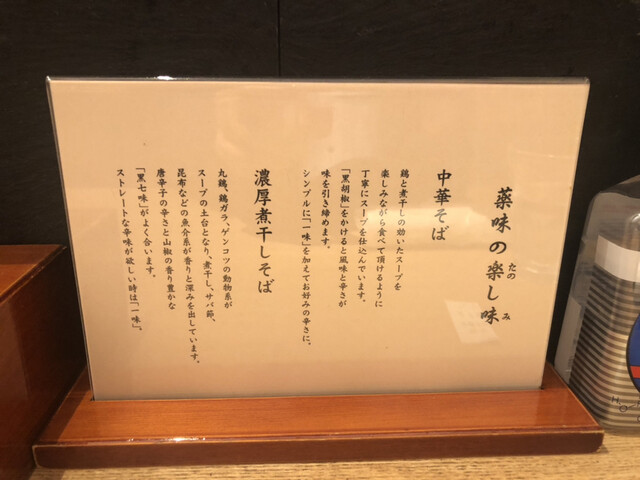 薬味の楽し味
たの
み
中華そば
鶏と煮干しの効いたスープを
楽しみながら食べて頂けるように
丁寧にスープを仕込んでいます。
「黒胡椒」をかけると風味と辛さが
味を引き締めます。
シンプルに「一味」を加えてお好みの辛さに。
濃厚煮干しそば
丸鶏、鶏ガラ、ゲンコツの動物系が
スープの土台となり、煮干し、サバ節、
昆布などの魚介系が香りと深みを出しています。
唐辛子の辛さと山椒の香り豊かな
「黒七味」がよく合います。
ストレートな辛味が欲しい時は「一味」。